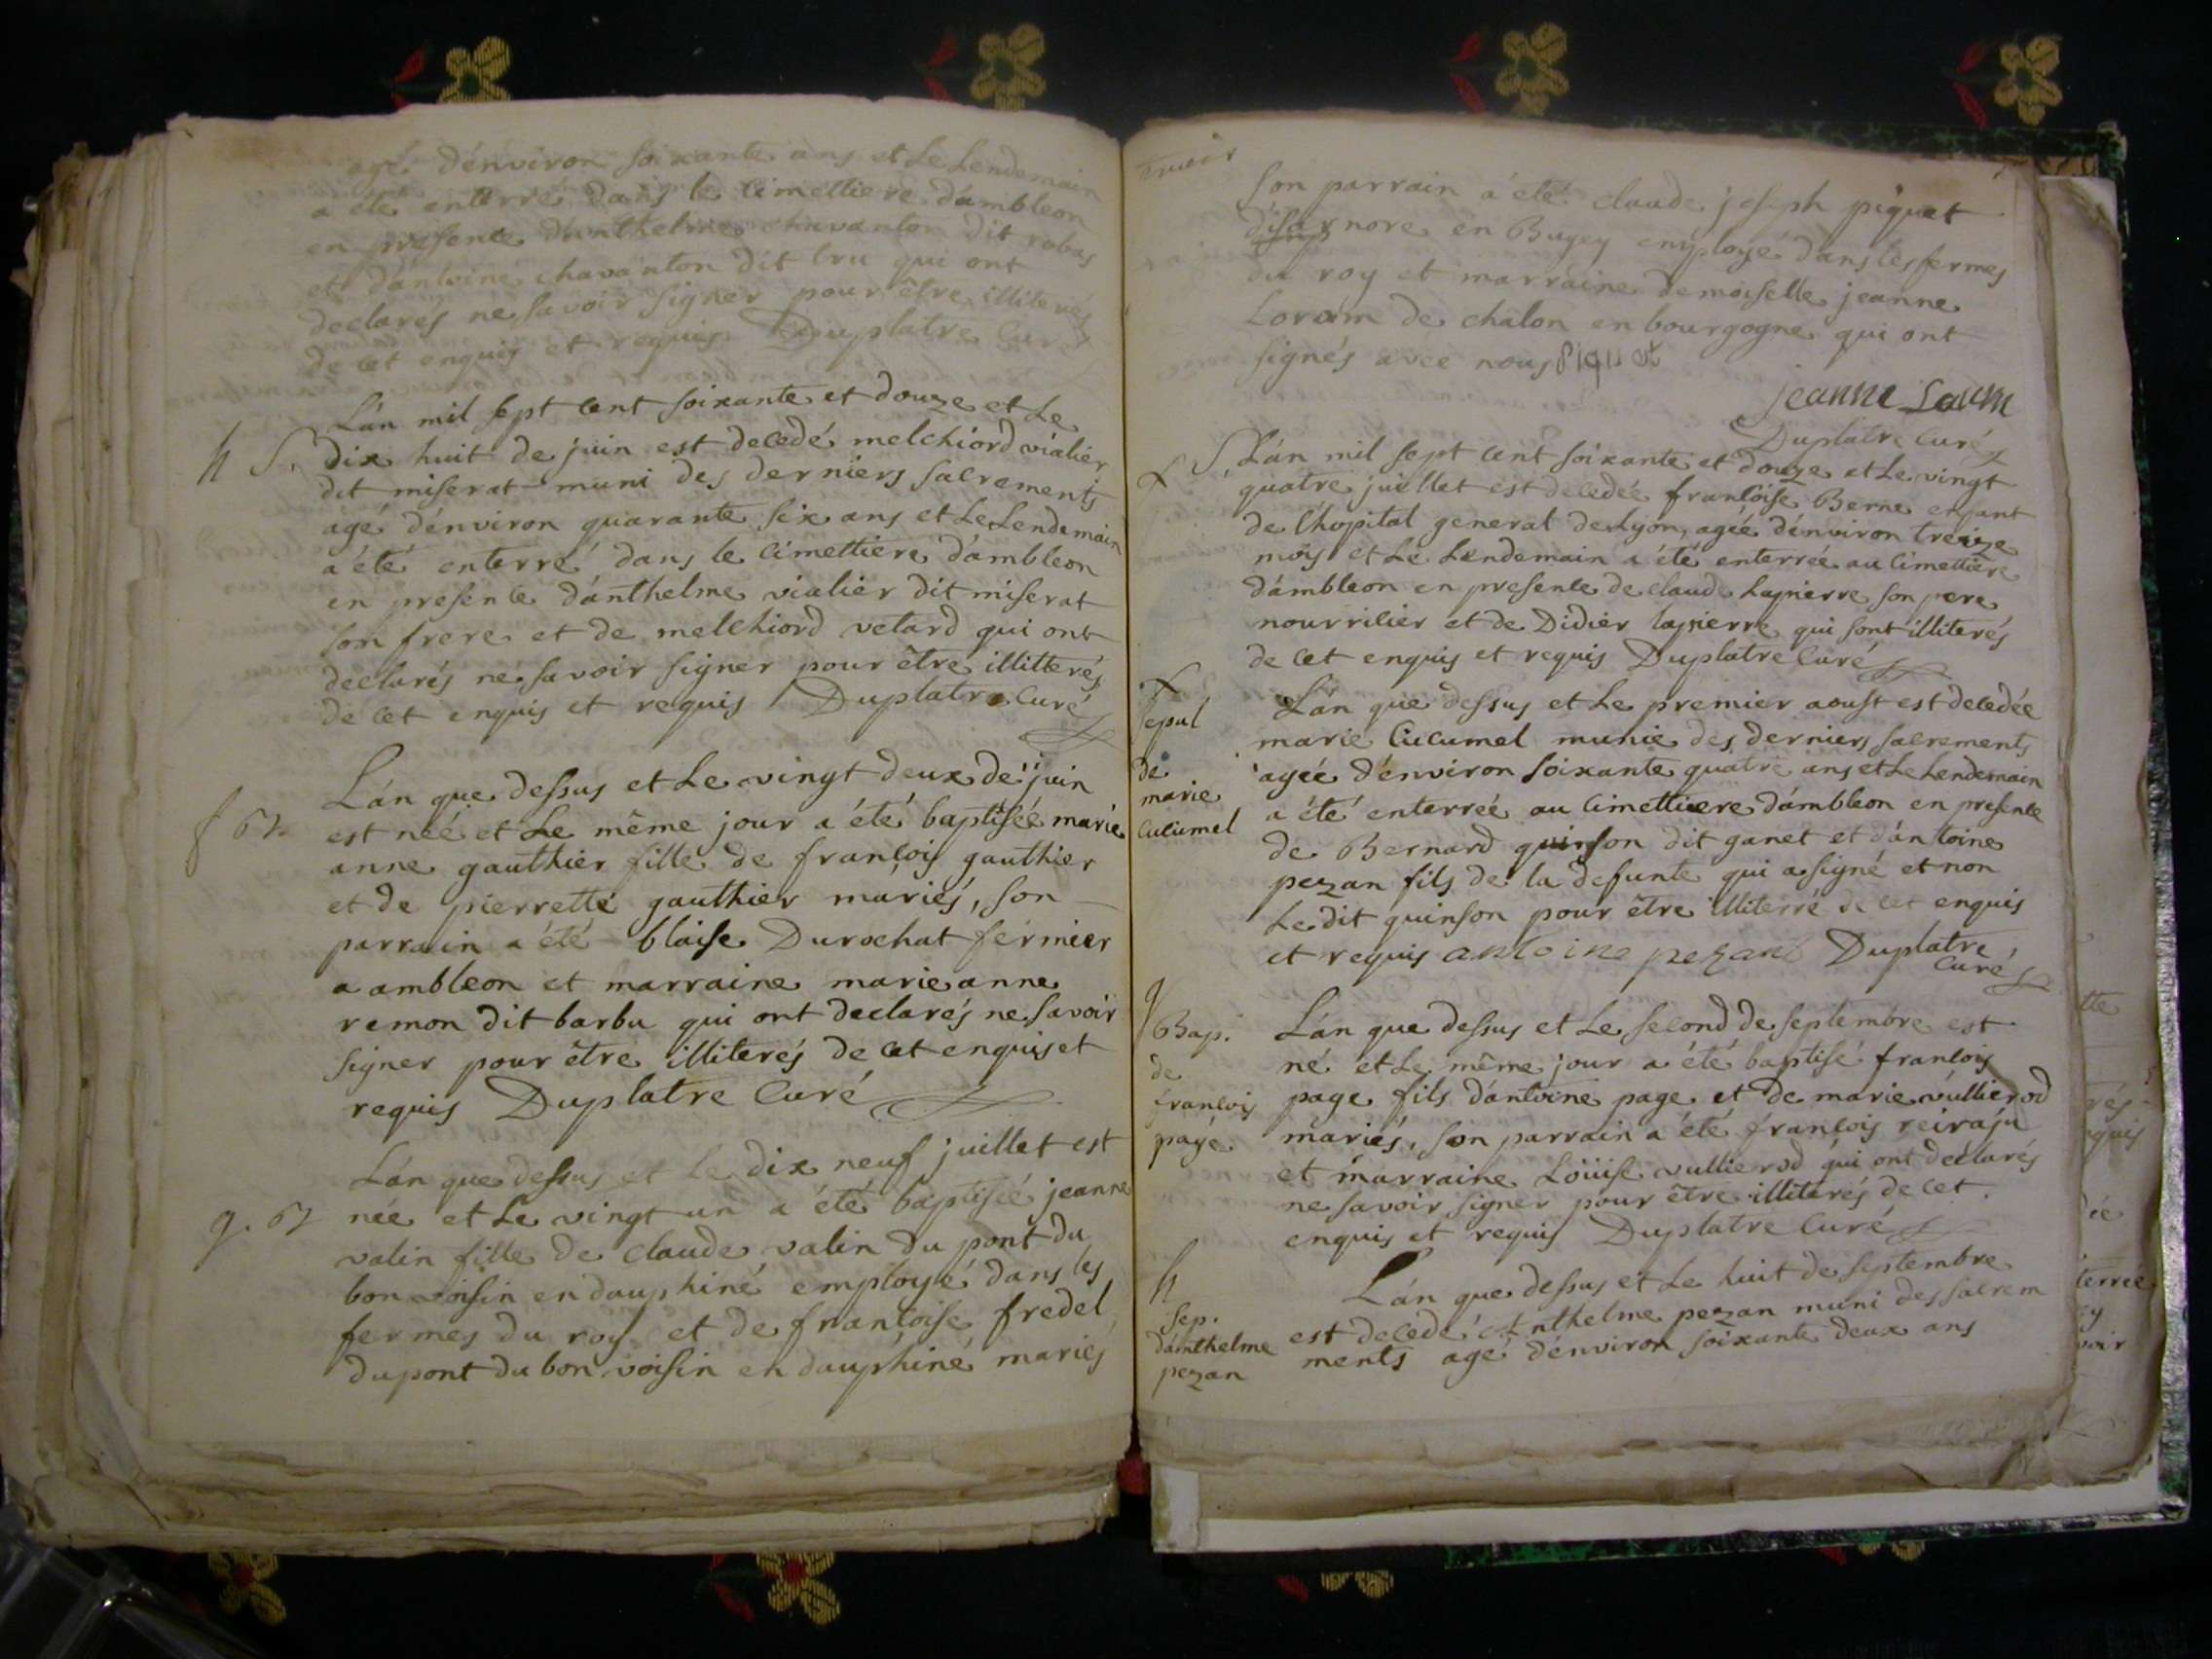 agé d'énviron soixante ans et Le Lendemain
a été enterré dans le cimettiere d'ambleon
en presence d'anthelme chavanton dit robas
et d'antoine chavanton dit bru qui ont
declarés ne savoir signer pour être illiterés
de cet enquis et requis Duplatre Curé
L'án mil sept cent soixante et douze et Le
h S. dix huit de juin est decedé melchiord vialier
dit miserat muni des derniers sacrements
agé d'énviron quarante six ans et Le Lendemain
a été enterré dans le cimettiere d'ambleon
en presence d'ánthelme vialier dit miserat
son frere et de melchiord vetard qui ont
declarés ne savoir signer pour être illitterés
de cet enquis et requis Duplatre Curé
L'án que dessus et Le vingt deux de juin
est née et Le même jour a été baptisée marie
anne gauthier fille de françois gauthier
et de pierrette gauthier mariés, son
parrain a été blaise Durochat fermier
a ambleon et marraine marie anne
remon dit barbu qui ont declarés ne savoir
signer pour être illiterés de cet enquis et
requis Duplatre Curé
L'án que dessus et le dix neuf juillet est
née et Le vingt un a été baptisée jeanne
valin fille de claude valin du pont du
bon voisin en dauphiné employé dans les
fermes du roy et de françoise fredel
du pont du bon voisin en dauphiné mariés
son parrain a été claude joseph piquet
d'isarnore en Bugey employé dans les fermes
du roy et marraine demoiselle jeanne
Loram de chalon en bourgogne qui ont
signés avec nous piquet
jeanne
Duplatre Curé
S. L'án mil sept cent soixante et douze et Le vingt
quatre juillet est decedée françoise Berne enfant
de l'hopital general de Lyon, agée d'énviron treize
mois et Le Lendemain a été enterrée au cimettiere
d'ámbleon en presence de claude Lapierre son pere
nourricier et de Didier lapierre qui sont illiterés
de cet enquis et requis Duplatre Curé
sepul
de
marie
cucumel
L'án que dessus et Le premier aoust est decedée
marie Cucumel munie des derniers sacrements
agée d'énviron soixante quatre ans et Le Lendemain
a été enterrée au cimettiere d'ámbleon en presence
de Bernard quinson dit ganet et d'ántoine
pezan fils de la defunte qui a signé et non
Le dit quinson pour être illiterré de cet enquis
et requis antoine pezant Duplatre
Curé
Bap.
de
françois
page
L'án que dessus et Le second de septembre est
né et Le même jour a été baptisé françois
page fils d'ántoine page et de marie vullierod
mariés, son parrain a été françois reiraju
et marraine Loüise vullierod qui ont declarés
ne savoir signer pour être illiterés de cet
enquis et requis Duplatre Curé
h
sep.
d'ánthelme
pezan
L'án que dessus et Le huit de septembre
est decedé Anthelme pezan muni des sacrem
ments agé d'énviron soixante deux ans